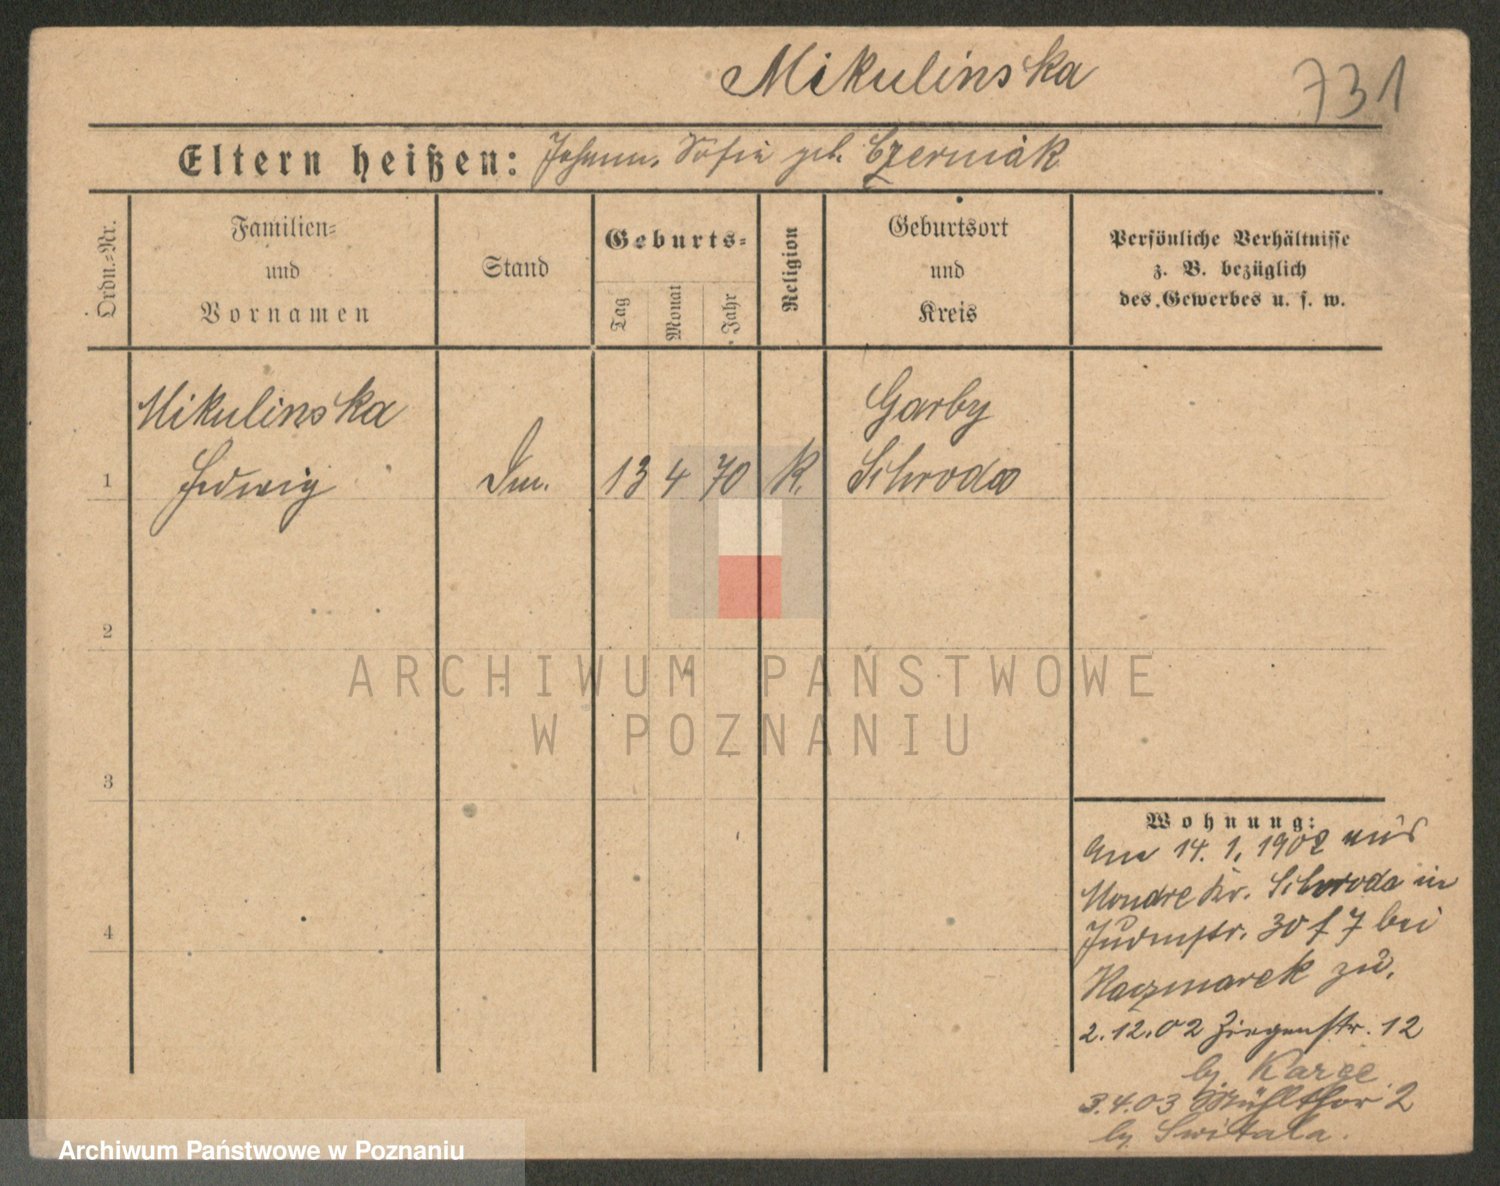 Mikulinska
731
Eltern heißen: Johann, Sofie geb. Czermak
Ordn.=Nr.
Familien=
und
Vornamen
Stand
Geburts=
Tag
Monat
Jahr
Religion
Geburtsort
und
Kreis
Persönliche Verhältnisse
z. B. bezüglich
des Gewerbes u. s. w.
Mikulinska
Garby
1 Hedwig 13 4 70 K. Schroda
2
3
4
Wohnung:
14. 1. 1902 aus
Mondre Kr. Schroda in
Judenstr. 30 f 7 bei
Kaczmarek zu.
2.12.02 Ziegenstr. 12
by Karge
3.4.03 Mühlthor 2
by Switala.
ARCHIWUM PAŃSTWOWE
W POZNANIU
Archiwum Państwowe w Poznaniu